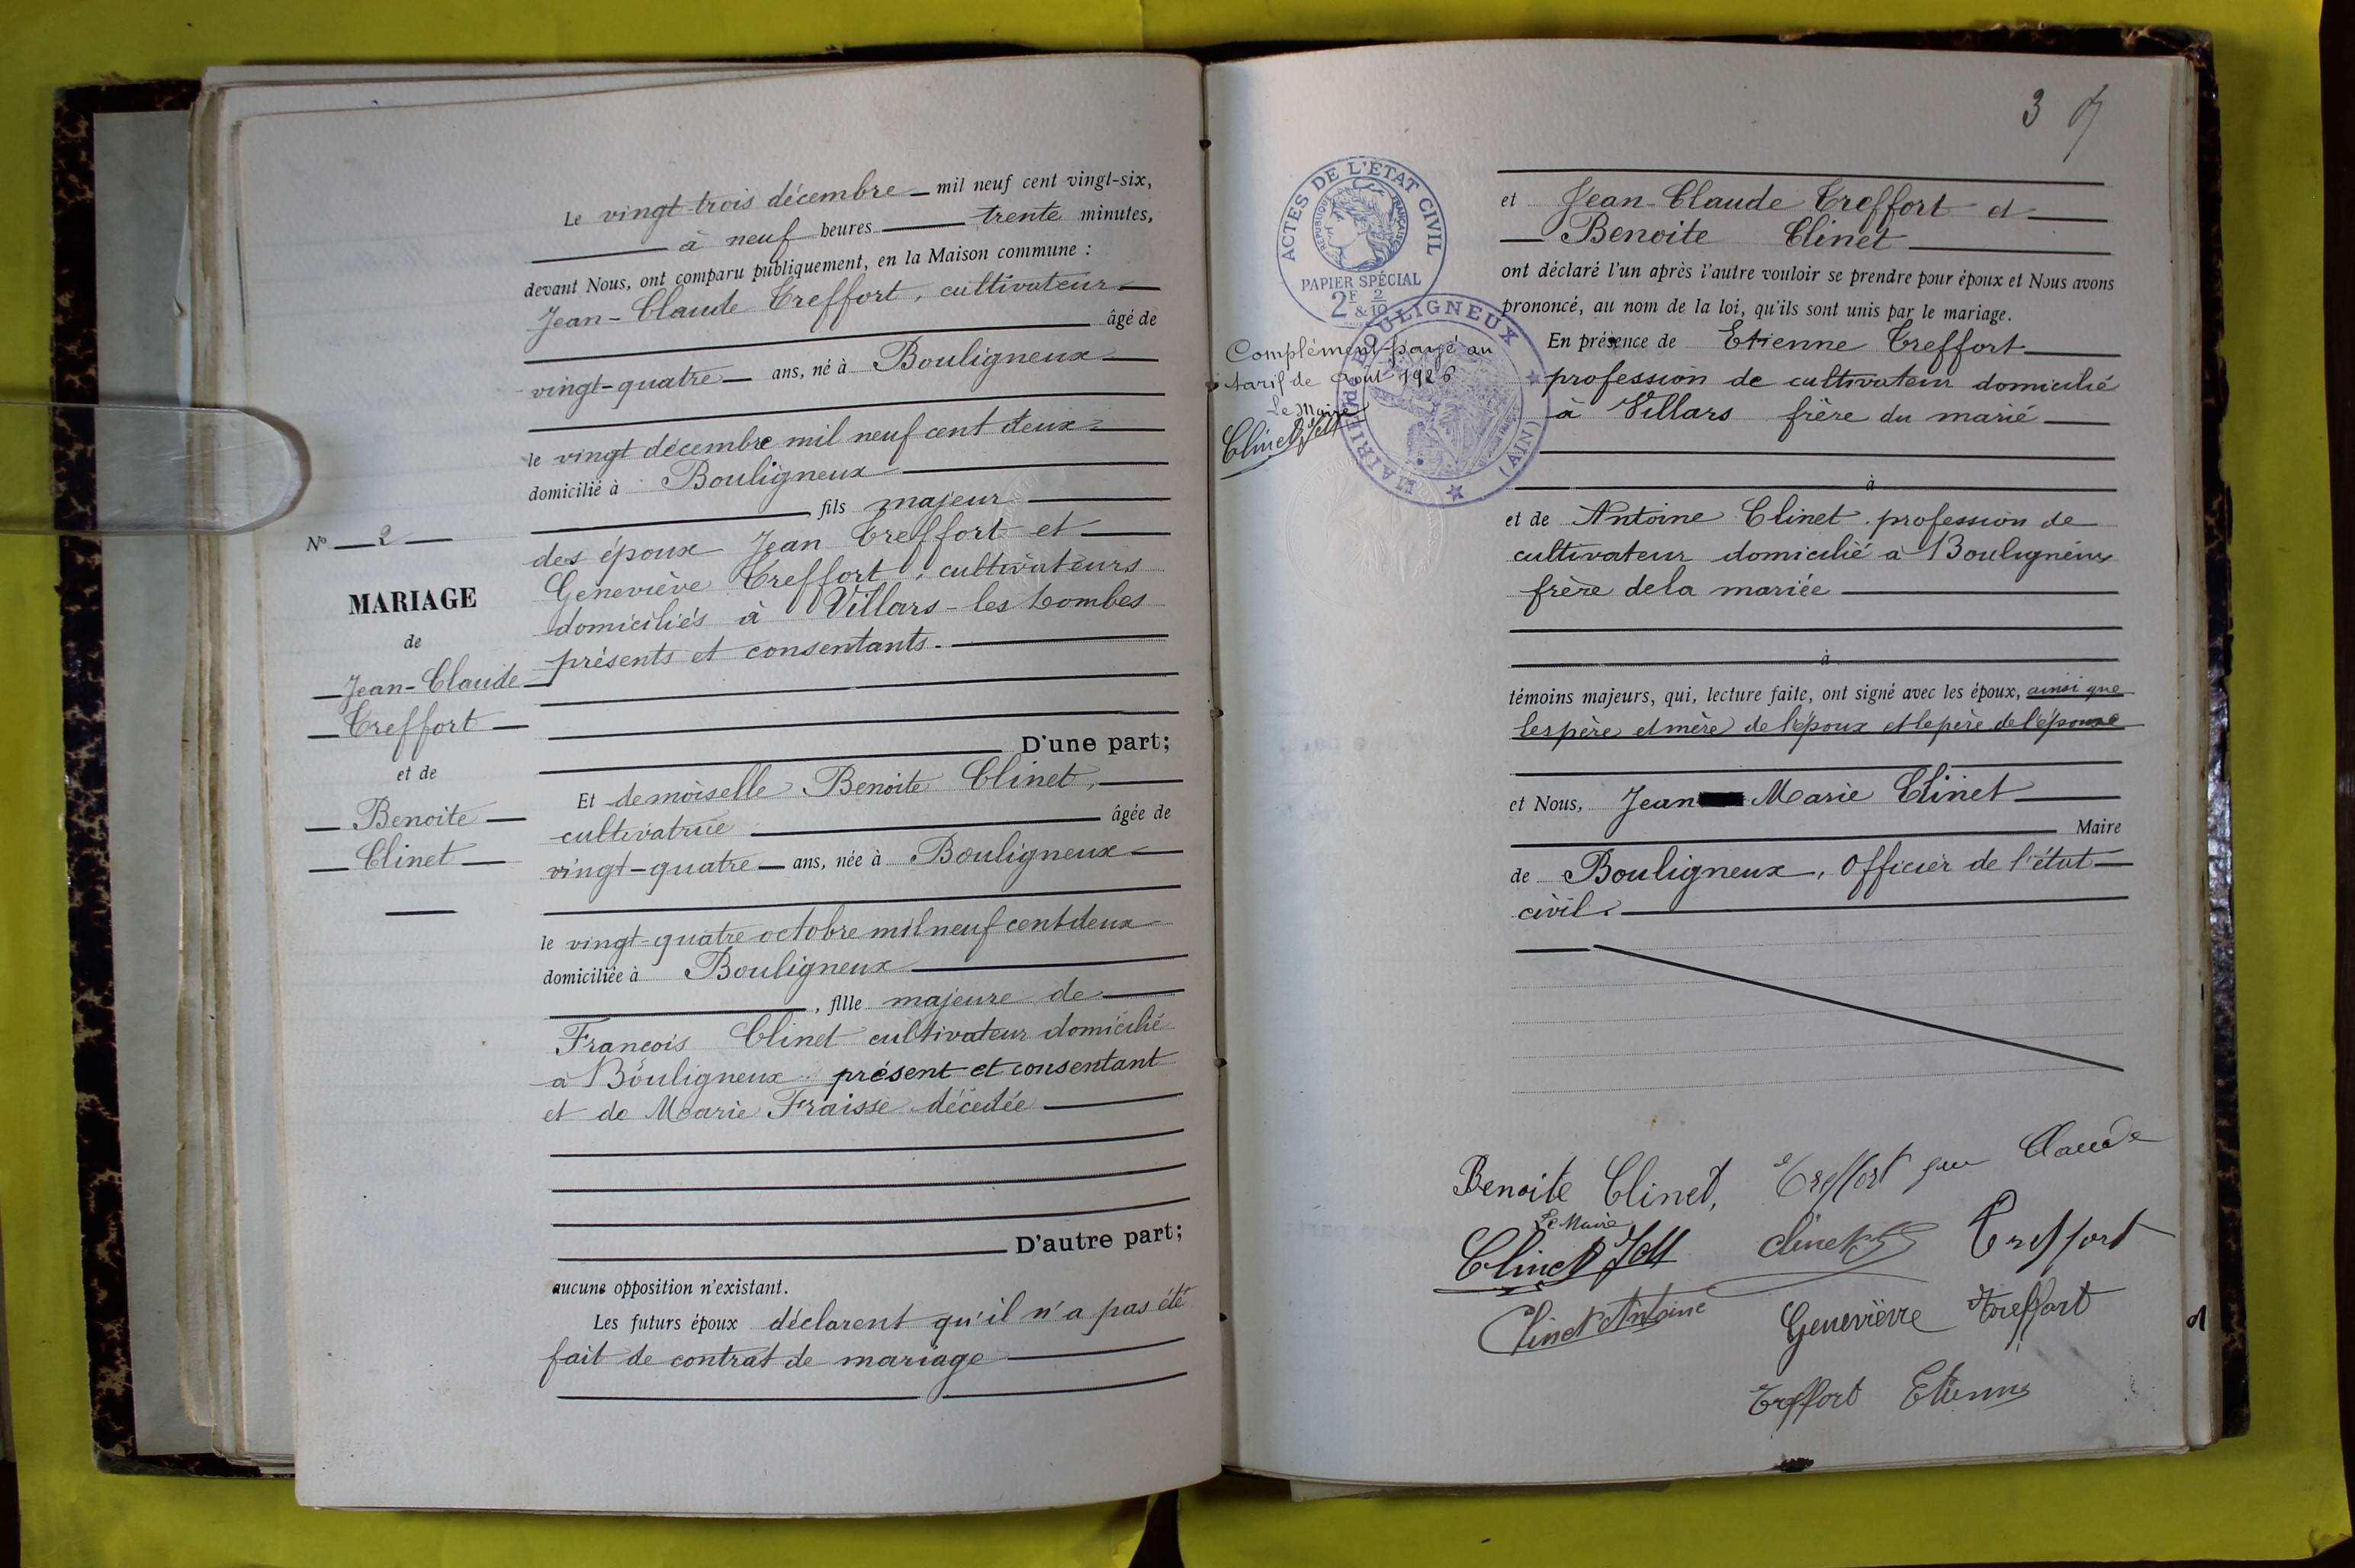 Le vingt-trois décembre mil neuf cent vingt-six,
à neuf heures trente minutes,
devant Nous, ont comparu publiquement, en la Maison commune :
Jean-Claude Treffort, cultivateur
âgé de
vingt-quatre ans, né à Bouligneux
le vingt décembre mil neuf cent deux
domicilié à Bouligneux
fils majeur
des époux Jean Treffort et
Geneviève Treffort, cultivateurs
domiciliés à Villars-les Dombes
présents et consentants.
N° 2
MARIAGE
de
Jean-Claude
Treffort
et de
Benoite
Clinet
D'une part;
Et demoiselle Benoite Clinet,
cultivatrice âgée de
vingt-quatre ans, née à Bouligneux
le vingt-quatre octobre mil neuf cent deux
domiciliée à Bouligneux
, fille majeure de
François Clinet cultivateur domicilié
à Bouligneux présent et consentant
et de Marie Fraisse décédée
D'autre part;
aucune opposition n'existant.
Les futurs époux déclarent qu'il n'a pas été
fait de contrat de mariage
3
ACTES DE L'ÉTAT CIVIL
RÉPUBLIQUE FRANÇAISE
PAPIER SPÉCIAL
2F & 2/10
MAIRIE de BOULIGNEUX
(AIN)
Complément payé au
tarif de Août 1926
Le Maire
Clinet JM
et Jean-Claude Treffort et
Benoite Clinet
ont déclaré l'un après l'autre vouloir se prendre pour époux et Nous avons
prononcé, au nom de la loi, qu'ils sont unis par le mariage.
En présence de Etienne Treffort
profession de cultivateur domicilié
à Villars frère du marié
à
et de Antoine Clinet profession de
cultivateur domicilié à Bouligneux
frère de la mariée
à
témoins majeurs, qui, lecture faite, ont signé avec les époux, ainsi que
les père et mère de l'époux et le père de l'épouse
et Nous, Jean Marie Clinet
Maire
de Bouligneux, Officier de l'état
civil.
Benoite Clinet, Treffort Jean Claude
Le Maire
Clinet JM Clinet Treffort
Clinet Antoine Geneviève Treffort
Treffort Etienne